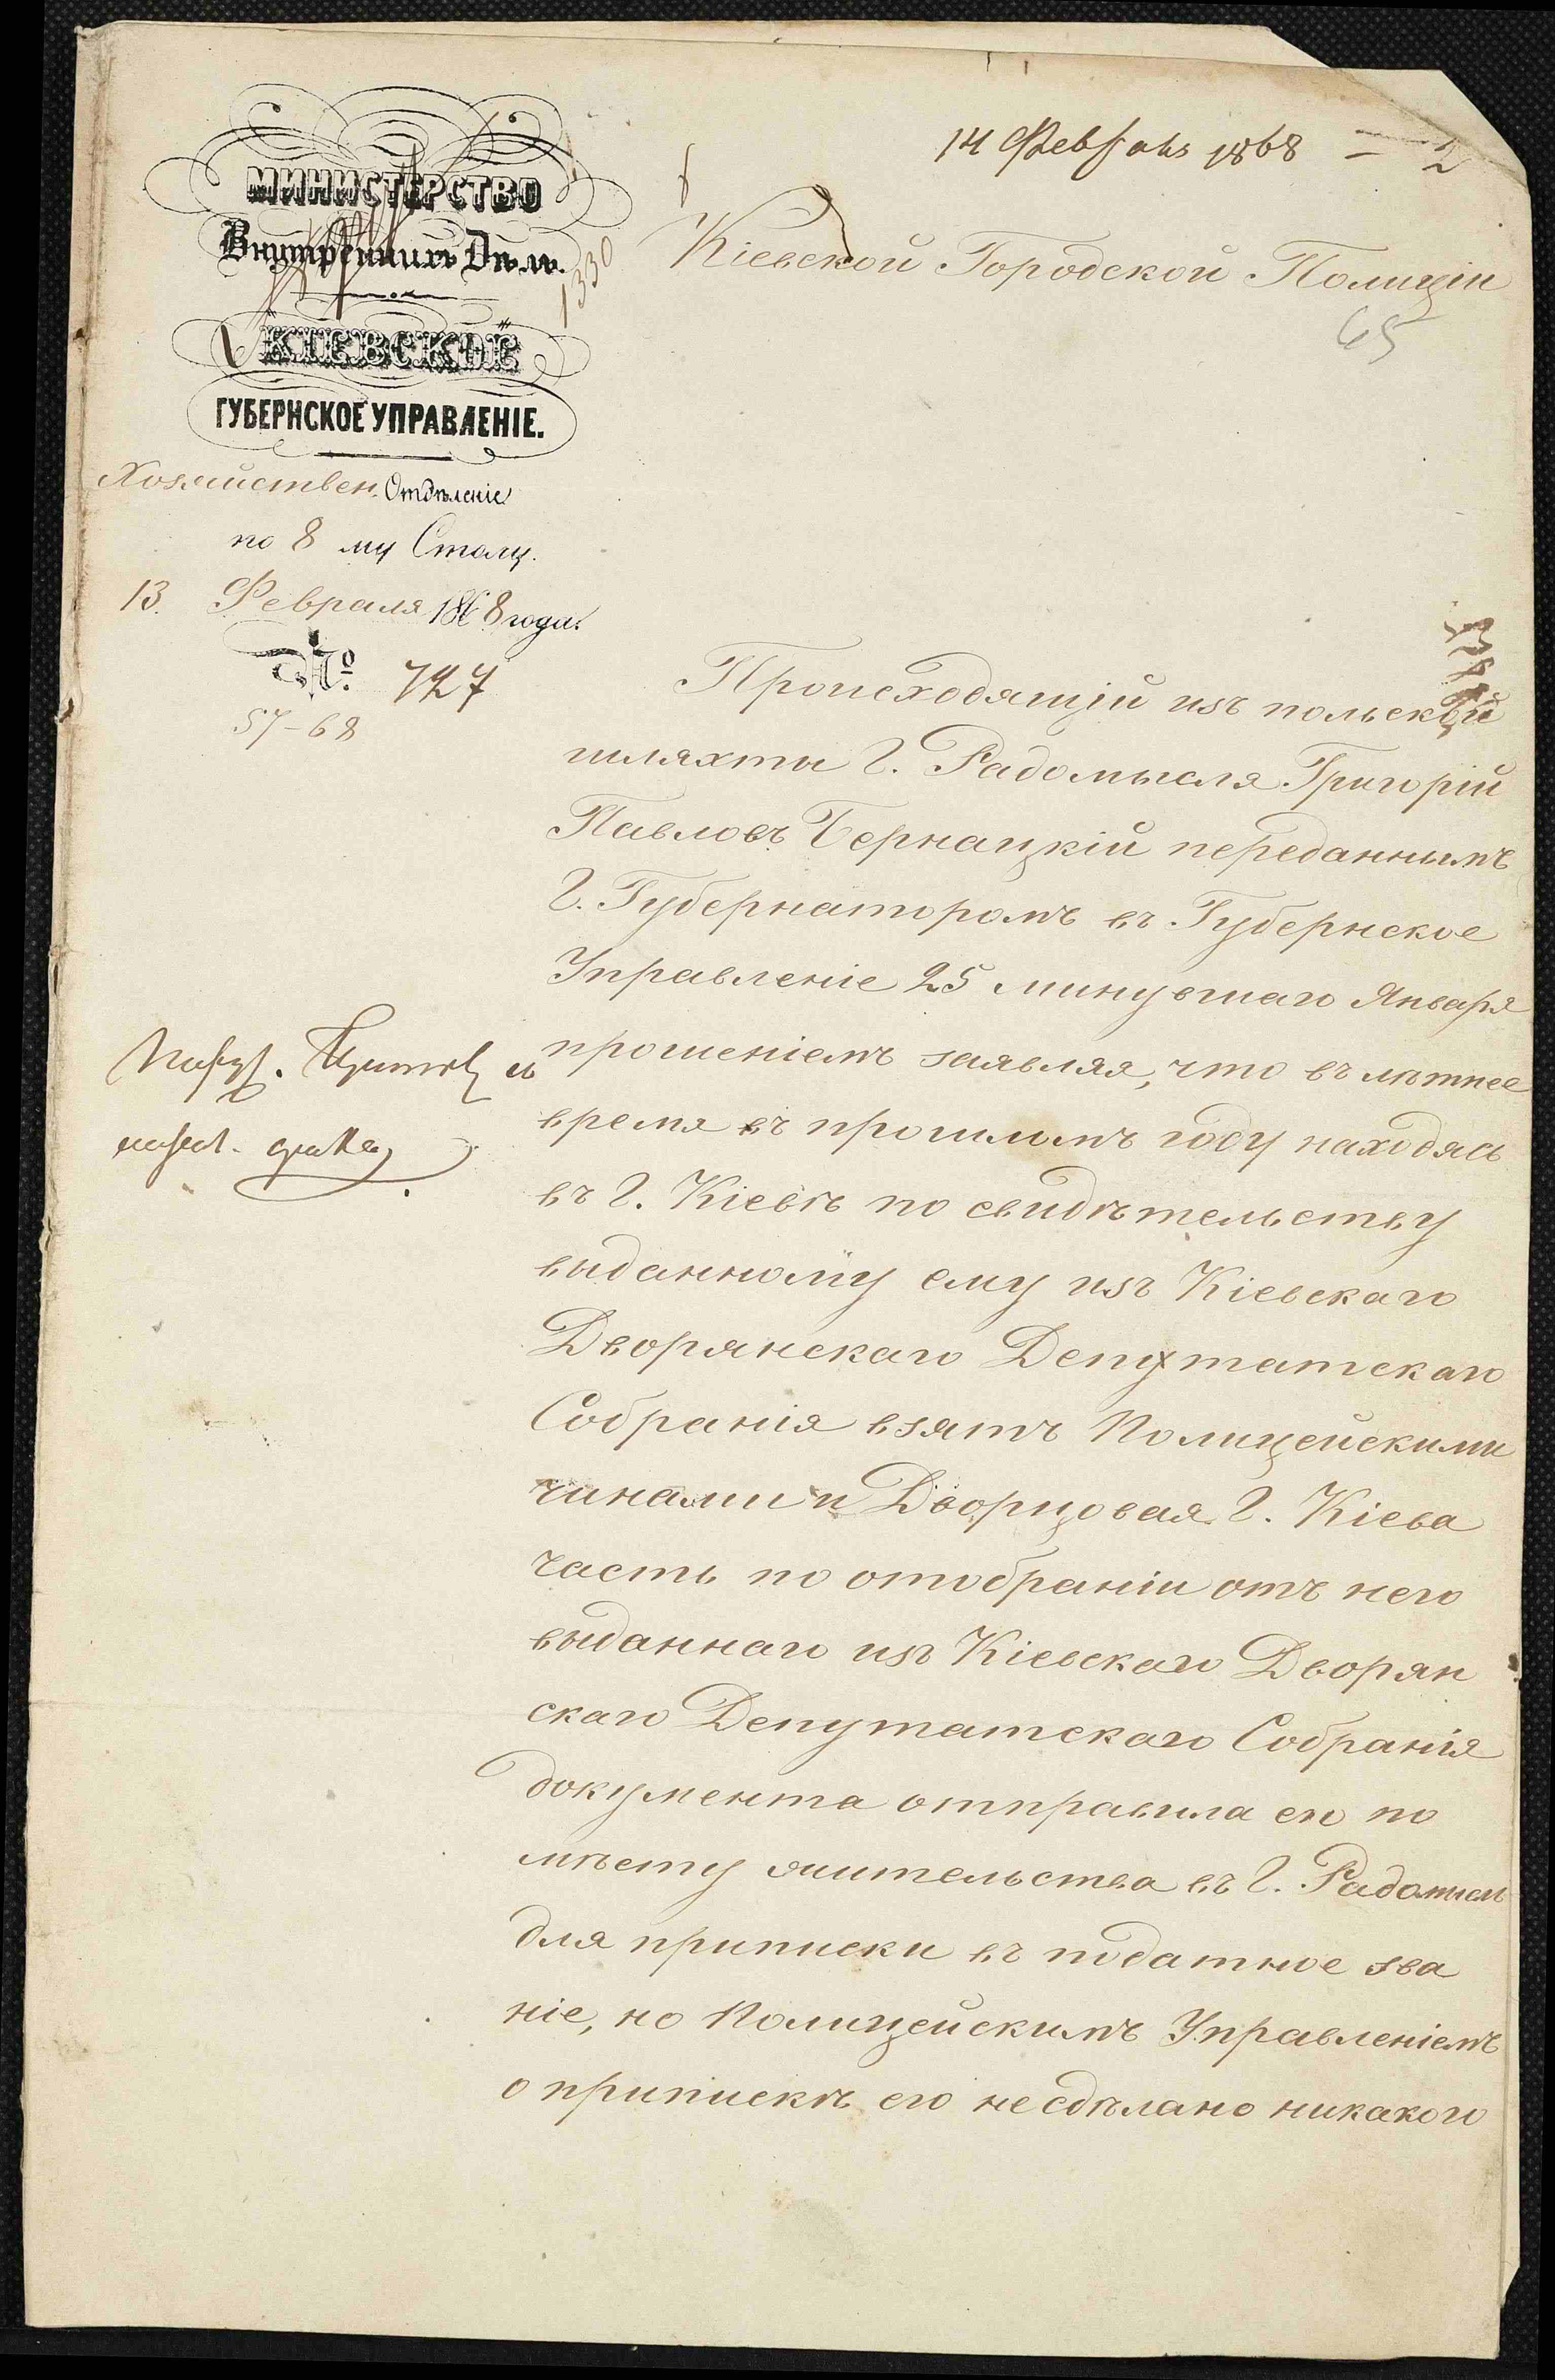 14 Февраля 1868 - 2
МИНИСТЕРСТВО
Внутреннихъ Дѣлъ.
1330
КІЕВСКОЕ
ГУБЕРНСКОЕ УПРАВЛЕНІЕ.
Хозяйствен. Отдѣленіе
по 8 му Столу.
13. Февраля 1868 года.
№ 727
57-68
Кіевской Городской Полиціи
65
Происходящій изъ польской
шляхты г. Радомысля Григорій
Павловъ Бернацкій переданнымъ
Г. Губернаторомъ въ Губернское
Управленіе 25 минувшаго Января
прошеніемъ заявляя, что въ лѣтнее
время въ прошломъ году находясь
въ г. Кіевѣ по свидѣтельству
выданному ему изъ Кіевскаго
Дворянскаго Депутатскаго
Собранія взятъ Полицейскими
чинами и Дворцовая г. Кіева
часть по отобраніи отъ него
выданнаго изъ Кіевскаго Дворян
скаго Депутатскаго Собранія
документа отправила его по
мѣсту жительства въ г. Радомысль
для приписки въ податное зва
ніе, но Полицейскимъ Управленіемъ
о припискѣ его не сдѣлано никакого